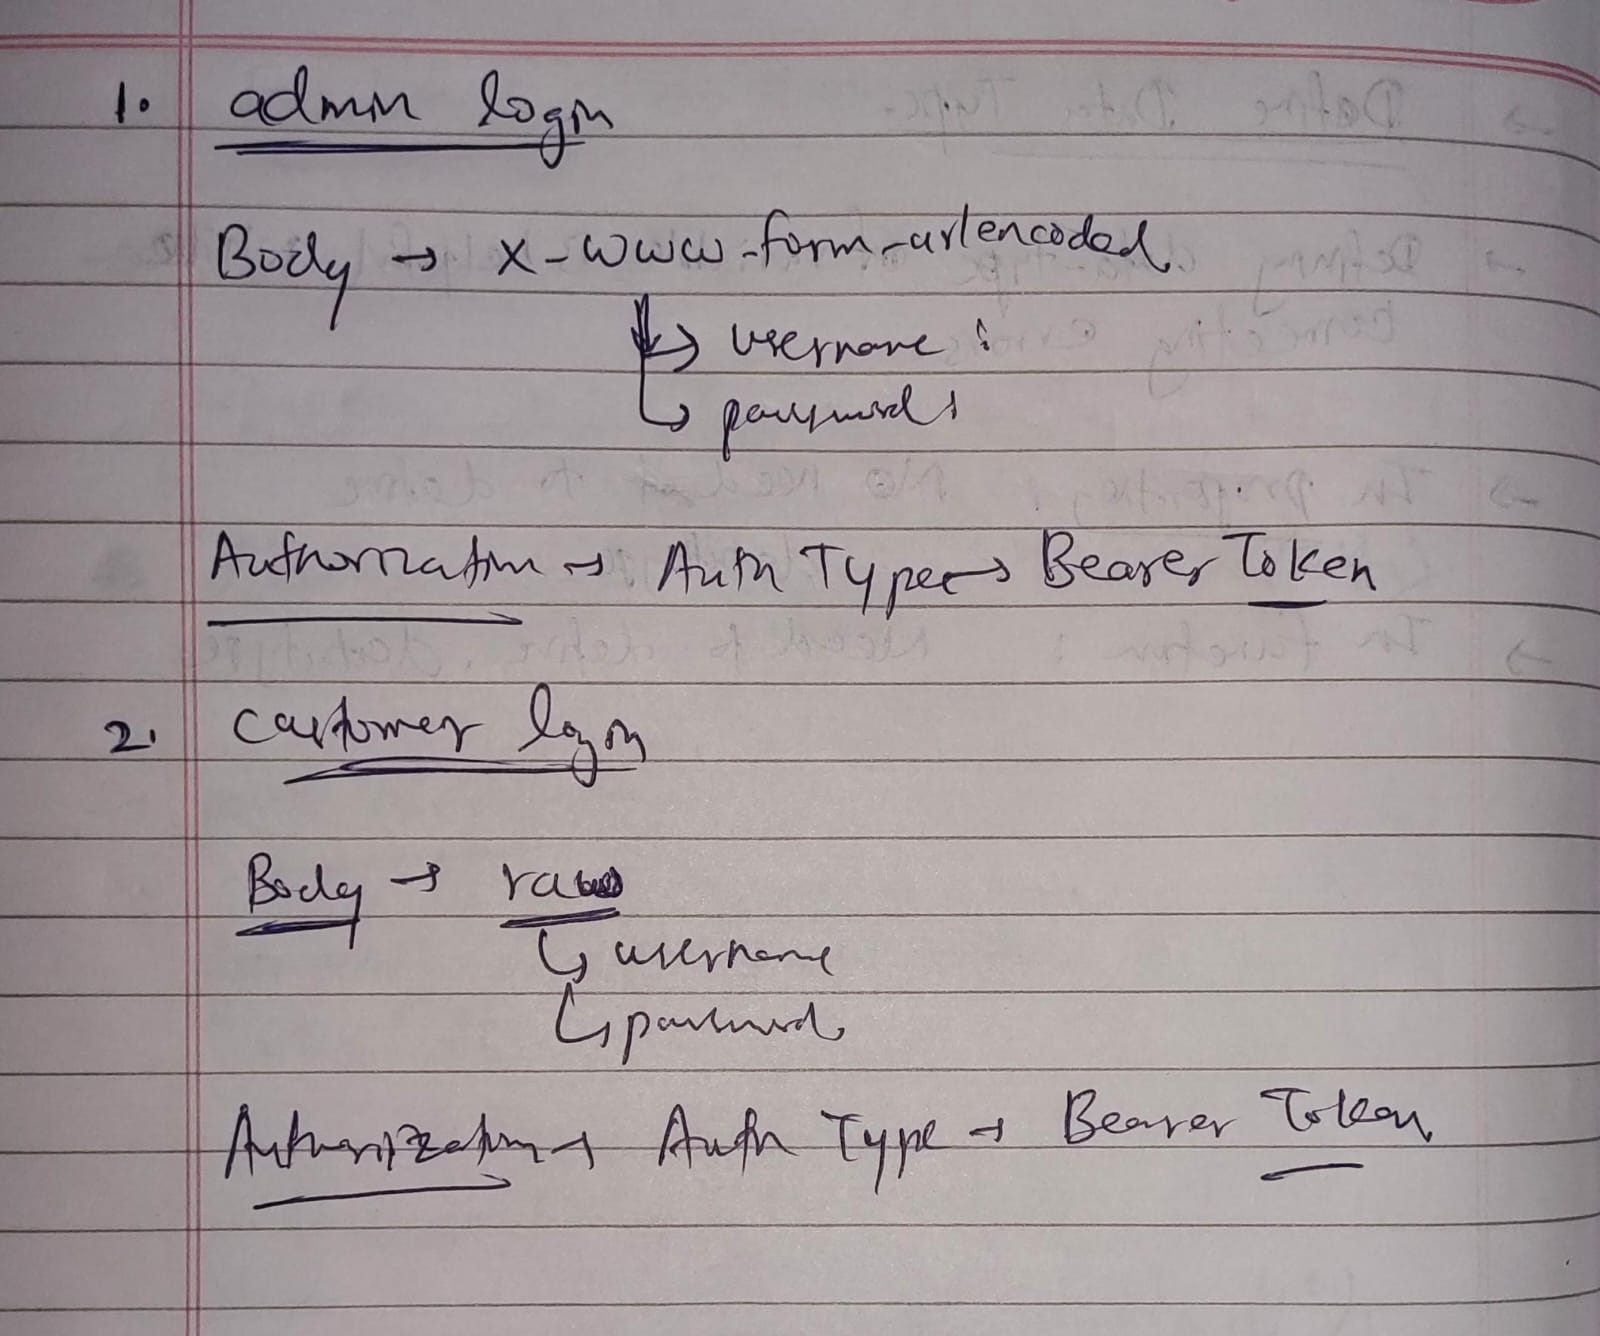 1. admin login
Body → x-www-form-urlencoded
→ username :
↳ password :
Authorization → Auth Type → Bearer Token
2. customer login
Body → raw
↳ username
↳ password
Authorization → Auth Type → Bearer Token